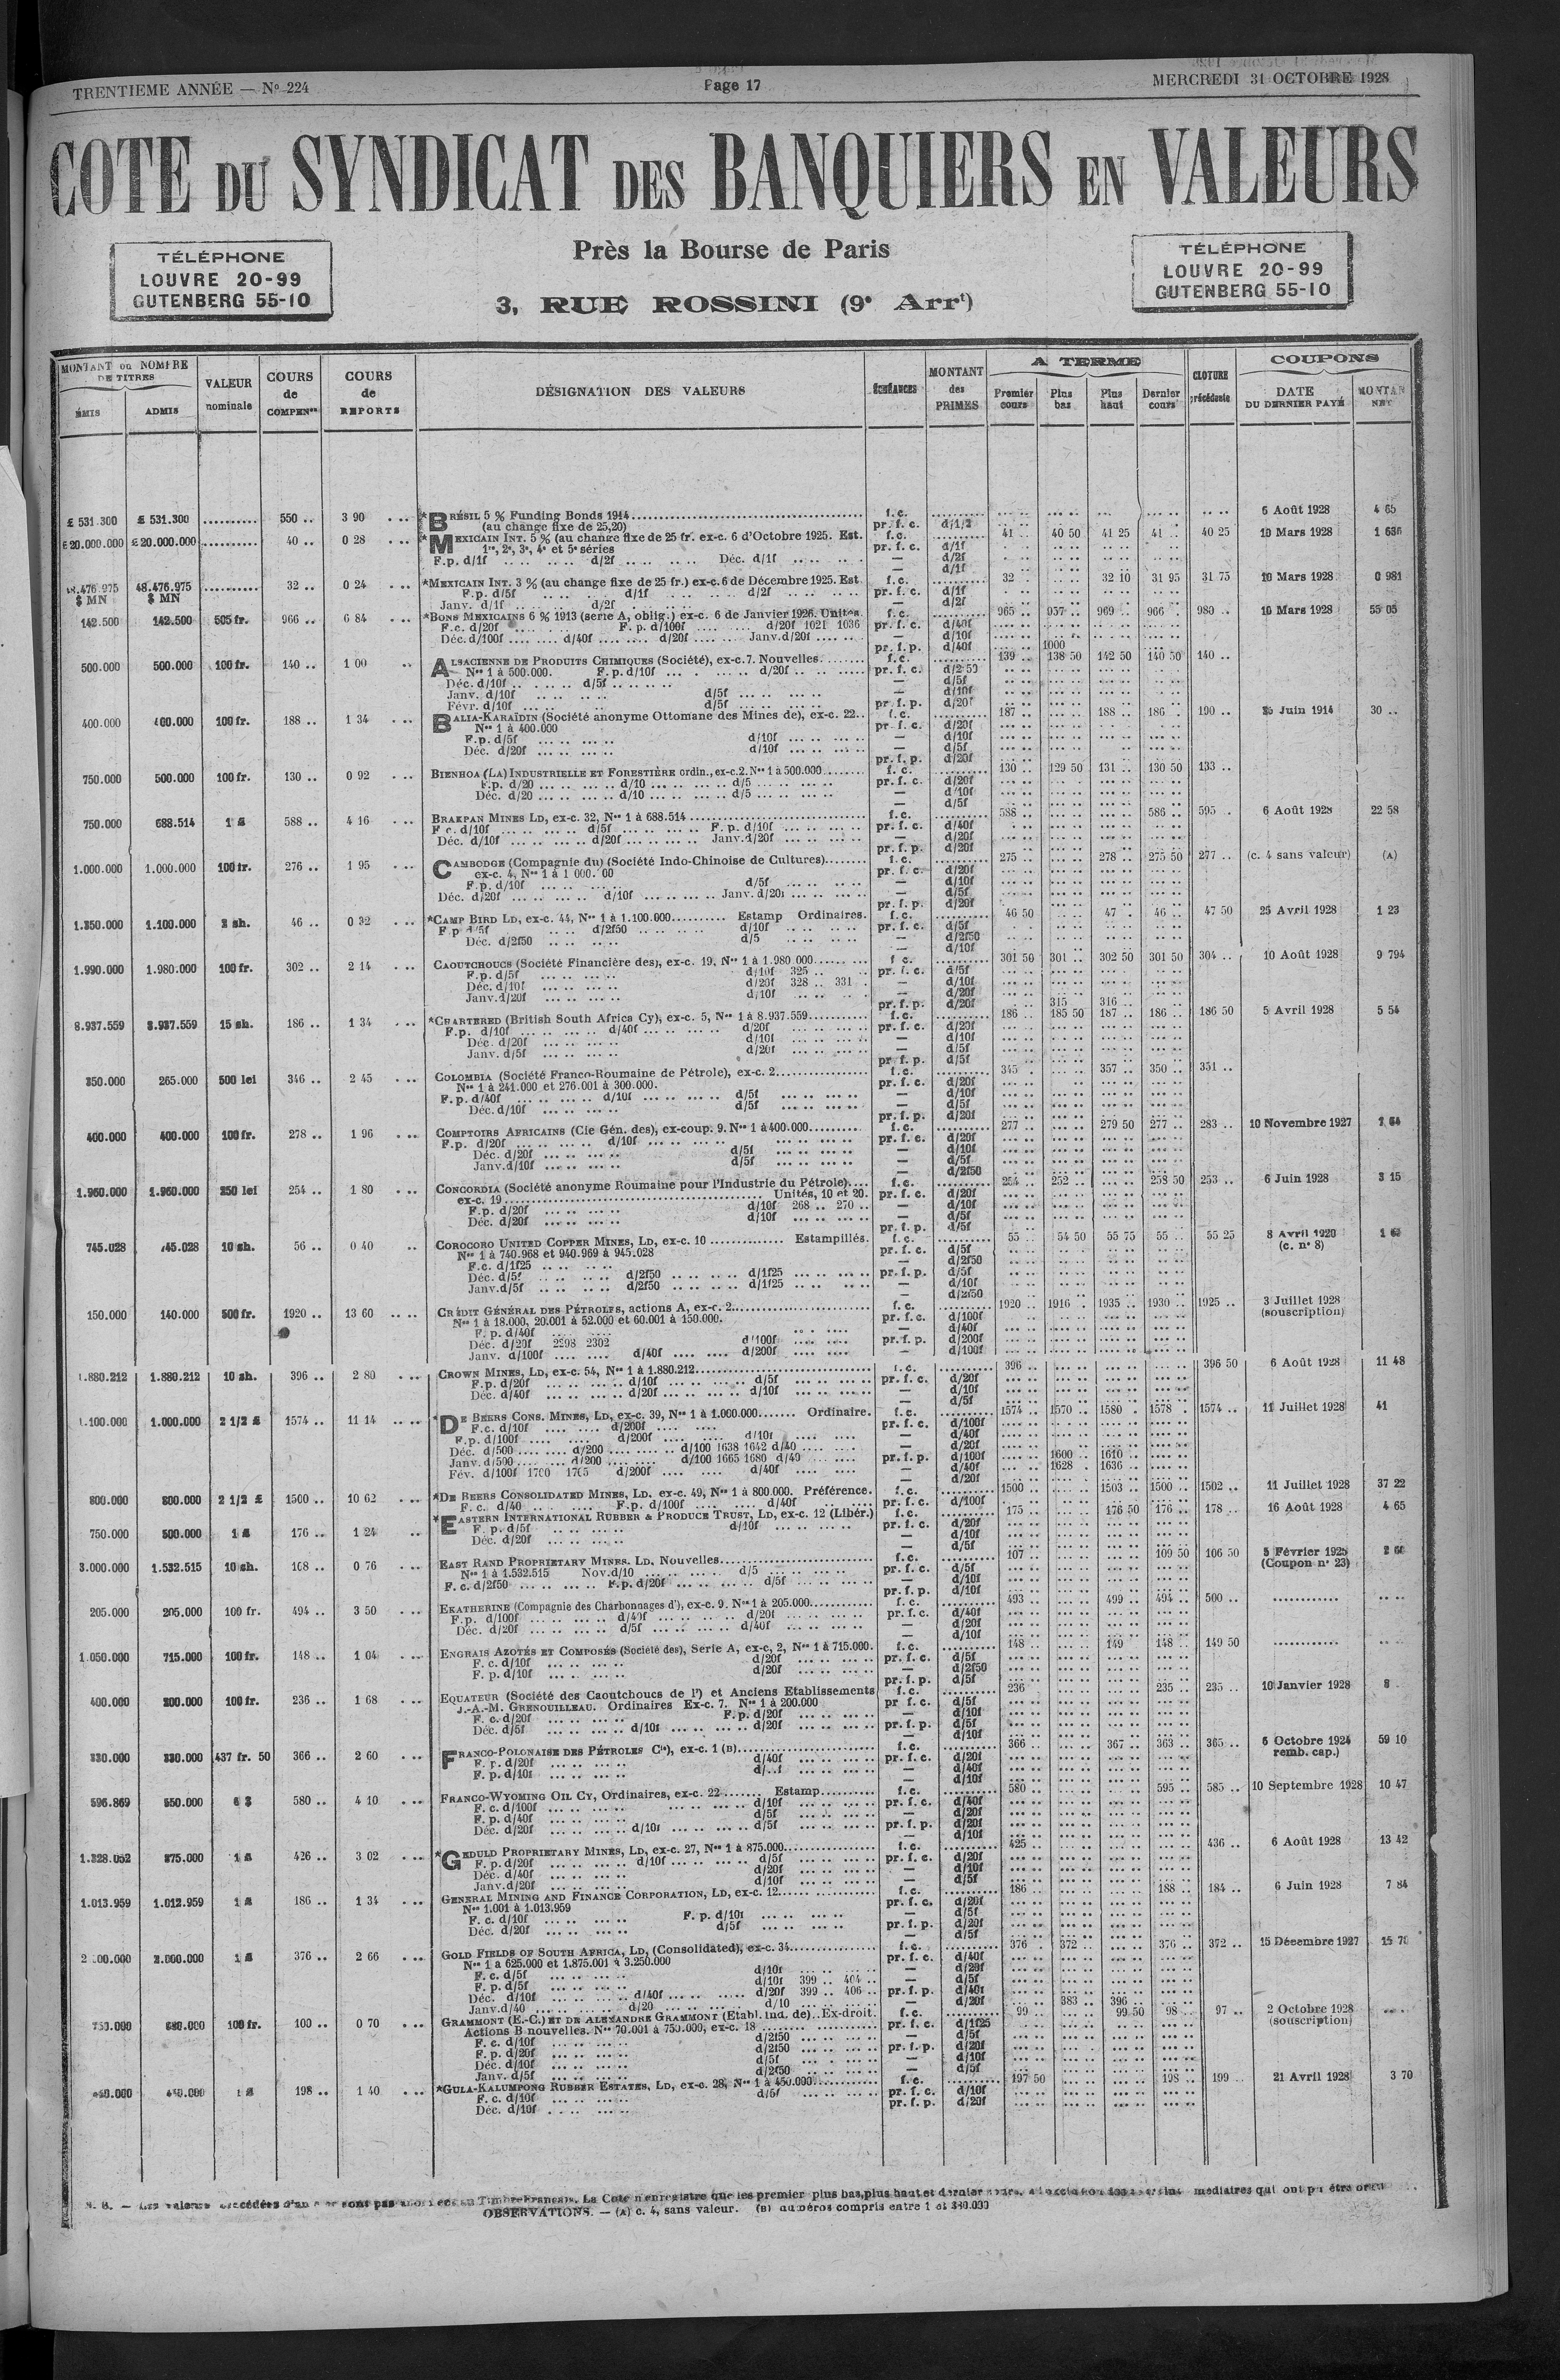 TRENTIEME ANNÉE — No 224 Page 17 MERCREDI 31 OCTOBRE 1928
COTE DU SYNDICAT DES BANQUIERS EN VALEURS
Près la Bourse de Paris
TÉLÉPHONE
LOUVRE 20-99
GUTENBERG 55-10
3, RUE ROSSINI (9e Arrt)
TÉLÉPHONE
LOUVRE 20-99
GUTENBERG 55-10
MONTANT ou NOMBRE DE TITRES
ÉMIS ADMIS
VALEUR nominale
COURS de COMPENon
COURS de REPORTS
DÉSIGNATION DES VALEURS
ÉCHÉANCES
MONTANT des PRIMES
A TERME
Premier cours Plus bas Plus haut Dernier cours
CLOTURE précédente
COUPONS
DATE DU DERNIER PAYÉ
MONTAN NET
£ 531.300 £ 531.300 550 .. 3 90 *BRÉSIL 5 % Funding Bonds 1914 f. c. 6 Août 1928 4 65
(au change fixe de 25,20) pr. f. c. d/1/2
£20.000.000 £20.000.000 40 .. 0 28 *MEXICAIN INT. 5 % (au change fixe de 25 fr. ex-c. 6 d'Octobre 1925. Est. f.c. 41 .. 40 50 41 25 41 .. 40 25 10 Mars 1928
1re, 2e, 3e, 4e et 5e séries pr. f. c. d/1f
F.p. d/1f d/2f Déc. d/1f — d/2f
48.476.975 $ MN 48.476.975 $ MN 32 .. 0 24 *MEXICAIN INT. 3 % (au change fixe de 25 fr.) ex-c. 6 de Décembre 1925. Est f. c. 32 .. 32 10 31 95 31 75 10 Mars 1928 0 981
F.p. d/5f d/1f d/2f pr. f. c. d/1f
Janv. d/1f d/2f — d/2f
142.500 142.500 505 fr. 966 .. 6 84 *BONS MEXICAINS 6 % 1913 (série A, oblig.) ex-c. 6 de Janvier 1926. Unités f. c. 965 .. 957 .. 969 .. 966 .. 980 .. 10 Mars 1928 55 05
F.c. d/20f F. p. d/100f d/20f 1021 1036 pr. f. c. d/40f
Déc. d/100f d/40f d/20f Janv. d/20f — d/10f
pr. f. p. d/40f 1000
500.000 500.000 100 fr. 140 .. 1 00 ALSACIENNE DE PRODUITS CHIMIQUES (Société), ex-c. 7. Nouvelles f. c. 139 .. 138 50 142 50 140 50 140 ..
Nos 1 à 500.000. F. p. d/10f d/20f pr. f. c. d/2 50
Déc. d/10f d/5f — d/5f
Janv. d/10f d/5f — d/10f
Févr. d/10f d/5f pr. f. p. d/20f
400.000 400.000 100 fr. 188 .. 1 34 BALIA-KARAÏDIN (Société anonyme Ottomane des Mines de), ex-c. 22 f. c. 187 .. 188 .. 186 .. 190 .. Juin 1914 30 ..
Nos 1 à 400.000 pr. f. c. d/20f
F.p. d/5f d/10f — d/10f
Déc. d/20f d/10f — d/5f
pr. f. p. d/20f
750.000 500.000 100 fr. 130 .. 0 92 BIENHOA (LA) INDUSTRIELLE ET FORESTIÈRE ordin., ex-c. 2. Nos 1 à 500.000 f. c. 130 .. 129 50 131 .. 130 50 133 ..
F.p. d/20 d/10 d/5 pr. f. c. d/20f
Déc. d/20 d/10 d/5 — d/10f
— d/5f
750.000 688.514 1 £ 588 .. 4 16 BRAKPAN MINES LD, ex-c. 32, Nos 1 à 688.514 f. c. 588 .. 586 .. 595 .. 6 Août 1928 22 58
F. c. d/10f d/5f F. p. d/10f pr. f. c. d/40f
Déc. d/10f d/20f Janv. d/20f — d/20f
pr. f. p. d/20f
1.000.000 1.000.000 100 fr. 276 .. 1 95 CAMBODGE (Compagnie du) (Société Indo-Chinoise de Cultures) f. c. 275 .. 278 .. 275 50 277 .. (c. 4 sans valeur) (A)
ex-c. 4, Nos 1 à 1 000. 00 pr. f. c. d/20f
F.p. d/10f d/5f — d/10f
Déc. d/20f d/10f Janv. d/20f — d/5f
pr. f. p. d/20f
1.350.000 1.100.000 2 sh. 46 .. 0 32 *CAMP BIRD LD, ex-c. 44, Nos 1 à 1.100.000 Estamp Ordinaires. f. c. 46 50 47 . 46 .. 47 50 25 Avril 1928 1 23
F p d/5f d/2f50 d/10f pr. f. c. d/5f
Déc. d/2f50 d/5 — d/2f50
— d/10f
1.990.000 1.980.000 100 fr. 302 .. 2 14 CAOUTCHOUCS (Société Financière des), ex-c. 19, Nos 1 à 1.980 000 f c. 301 50 301 .. 302 50 301 50 304 .. 10 Août 1928 9 794
F.p. d/5f d/10f 325 pr. f. c. d/5f
Déc. d/10f d/20f 328 .. 331 — d/10f
Janv. d/20f d/10f — d/20f
pr. f. p. d/20f 315 316
8.937.559 8.937.559 15 sh. 186 .. 1 34 *CHARTERED (British South Africa Cy), ex-c. 5, Nos 1 à 8.937.559 f. c. 186 .. 185 50 187 .. 186 .. 186 50 5 Avril 1928 5 54
F.p. d/10f d/40f d/20f pr. f. c. d/20f
Déc. d/20f d/10f — d/10f
Janv. d/5f d/20f — d/5f
pr. f. p. d/5f
350.000 265.000 500 lei 346 .. 2 45 COLOMBIA (Société Franco-Roumaine de Pétrole), ex-c. 2 f. c. 345 .. 357 .. 350 .. 351 ..
Nos 1 à 241.000 et 276.001 à 300.000. pr. f. c. d/20f
F.p. d/40f d/10f d/5f — d/10f
Déc. d/10f d/5f — d/5f
pr. f. p. d/20f
400.000 400.000 100 fr. 278 .. 1 96 COMPTOIRS AFRICAINS (Cie Gén. des), ex-coup. 9. Nos 1 à 400.000 f. c. 277 .. 279 50 277 .. 283 .. 10 Novembre 1927
F.p. d/20f d/10f pr. f. c. d/20f
Déc. d/20f d/5f — d/10f
Janv. d/10f d/5f — d/5f
— d/2f50
1.960.000 1.960.000 250 lei 254 .. 1 80 CONCORDIA (Société anonyme Roumaine pour l'Industrie du Pétrole) f. c. 254 .. 252 .. 258 50 253 .. 6 Juin 1928 3 15
ex-c. 19 Unités, 10 et 20. pr. f. c. d/20f
F.p. d/20f d/10f 268 .. 270 .. — d/10f
Déc. d/20f d/10f — d/5f
pr. f. p. d/5f
745.028 745.028 10 sh. 56 .. 0 40 COROCORO UNITED COPPER MINES, LD, ex-c. 10 Estampillés. f. c. 55 .. 54 50 55 75 55 .. 55 25 8 Avril 1920
Nos 1 à 740.968 et 940.969 à 945.028 pr. f. c. d/5f (c. no 8)
F.c. d/1f25 — d/2f50
Déc. d/5f d/2f50 d/1f25 pr. f. p. d/5f
Janv. d/5f d/2f50 d/1f25 — d/10f
— d/2f50
150.000 140.000 500 fr. 1920 .. 13 60 CRÉDIT GÉNÉRAL DES PÉTROLES, actions A, ex-c. 2 f. c. 1920 .. 1916 . 1935 .. 1930 .. 1925 .. 3 Juillet 1928
Nos 1 à 18.000, 20.001 à 52.000 et 60.001 à 150.000. pr. f. c. d/100f (souscription)
F. p. d/40f — d/40f
Déc. d/20f 2298 2302 d/100f pr. f. p. d/200f
Janv. d/100f d/40f d/200f — d/100f
1.880.212 1.880.212 10 sh. 396 .. 2 80 CROWN MINES, LD, ex-c. 54, Nos 1 à 1.880.212 f. c. 396 .. 396 50 6 Août 1928 11 48
F.p. d/20f d/10f d/5f pr. f. c. d/20f
Déc. d/40f d/20f d/10f — d/10f
— d/5f
1.100.000 1.000.000 2 1/2 £ 1574 .. 11 14 *DE BEERS CONS. MINES, LD, ex-c. 39, Nos 1 à 1.000.000 Ordinaire. f. c. 1574 .. 1570 .. 1580 . 1578 . 1574 .. 11 Juillet 1928 41
F.c. d/10f d/200f pr. f. c. d/100f
F.p. d/100f d/200f d/10f — d/40f
Déc. d/500 d/200 d/100 1638 1642 d/40 — d/20f
Janv. d/500 d/200 d/100 1665 1680 d/40 pr. f. p. d/100f 1600 1610
Fév. d/100f 1700 1705 d/200f d/40f — d/40f 1628 1636
— d/20f
800.000 800.000 2 1/2 £ 1500 .. 10 62 *DE BEERS CONSOLIDATED MINES, LD. ex-c. 49, Nos 1 à 800.000. Préférence. f. c. 1500 .. 1503 .. 1500 .. 1502 .. 11 Juillet 1928 37 22
F. c. d/40 F.p. d/100f d/40f pr. f. c. d/100f
750.000 500.000 1 £ 176 .. 1 24 *EASTERN INTERNATIONAL RUBBER & PRODUCE TRUST, LD, ex-c. 12 (Libér.) f. c. 175 .. 176 50 176 .. 178 .. 16 Août 1928 4 65
F. p. d/5f d/10f pr. f. c. d/20f
Déc. d/20f — d/10f
— d/5f
3.000.000 1.532.515 10 sh. 108 .. 0 76 EAST RAND PROPRIETARY MINES. LD. Nouvelles f. c. 107 .. 109 50 106 50 5 Février 1925
Nos 1 à 1.532.515 Nov. d/10 d/5 pr. f. c. d/5f (Coupon no 23)
F. c. d/2f50 F.p. d/20f d/5f — d/10f
pr. f. p. d/10f
205.000 205.000 100 fr. 494 .. 3 50 EKATHERINE (Compagnie des Charbonnages d'), ex-c. 9. Nos 1 à 205.000 f. c. 493 .. 499 .. 494 .. 500 ..
F.p. d/100f d/40f d/20f pr. f. c. d/40f
Déc. d/20f d/5f d/40f — d/20f
— d/10f
1.050.000 715.000 100 fr. 148 .. 1 04 ENGRAIS AZOTÉS ET COMPOSÉS (Société des), Serie A, ex-c, 2, Nos 1 à 715.000. f. c. 148 .. 149 148 .. 149 50
F. c. d/10f d/20f pr. f. c. d/5f
F. p. d/10f d/20f — d/2f50
pr. f. p. d/5f
400.000 200.000 100 fr. 236 .. 1 68 EQUATEUR (Société des Caoutchoucs de l') et Anciens Etablissements f. c. 236 235 .. 235 .. 10 Janvier 1928 8
J.-A.-M. GRENOUILLEAU. Ordinaires Ex-c. 7. Nos 1 à 200.000 pr f. c. d/5f
F. c. d/20f F.p. d/20f — d/10f
Déc. d/5f d/10f d/20f pr. f. p. d/5f
— d/10f
330.000 330.000 437 fr. 50 366 .. 2 60 FRANCO-POLONAISE DES PÉTROLES Cie), ex-c. 1 (B) f. c. 366 .. 367 .. 363 .. 365 .. 5 Octobre 1924 59 10
F. p. d/20f d/40f pr. f. c. d/20f remb. cap.)
F. p. d/10f — d/40f
— d/10f
596.869 550.000 580 .. 4 10 FRANCO-WYOMING OIL CY, Ordinaires, ex-c. 22 Estamp f. c. 580 .. 595 .. 585 .. 10 Septembre 1928 10 47
F. c. d/100f d/10f pr. f. c. d/40f
F. p. d/40f d/5f — d/20f
Déc. d/20f d/10f d/5f pr. f. p. d/20f
— d/10f
1.328.052 875.000 1 £ 426 .. 3 02 *GEDULD PROPRIETARY MINES, LD, ex-c. 27, Nos 1 à 875.000 f. c. 425 .. 436 .. 6 Août 1928 13 42
F. p. d/20f d/10f d/5f pr. f. c. d/20f
Déc. d/40f d/20f — d/10f
Janv. d/20f d/10f — d/5f
1.013.959 1.012.959 1 £ 186 .. 1 34 GENERAL MINING AND FINANCE CORPORATION, LD, ex-c. 12 f. c. 186 .. 188 .. 184 .. 6 Juin 1928 7 84
Nos 1.001 à 1.013.959 pr. f. c. d/20f
F. c. d/10f F. p. d/10f — d/5f
Déc. d/20f d/5f pr. f. p. d/20f
— d/5f
2.000.000 376 .. 2 66 GOLD FIELDS OF SOUTH AFRICA, LD, (Consolidated), ex-c. 34 f. c. 376 . 372 .. 376 .. 372 .. 15 Décembre 1927
Nos 1 à 625.000 et 1.875.001 à 3.250.000 pr. f. c. d/40f
F. c. d/5f d/10f — d/20f
F. p. d/5f d/10f 399 .. 404 .. — d/5f
Déc. d/10f d/40f d/20f 399 .. 406 .. pr. f. p. d/40f
Janv. d/40 d/20 d/10 — d/20f 383 .. 396
750.000 100 fr. 100 .. 0 70 GRAMMONT (E.-C.) ET DE ALEXANDRE GRAMMONT (Etabl. ind. de). Ex-droit. f. c. 99 .. 99 50 98 .. 97 .. 2 Octobre 1928
Actions B nouvelles. Nos 70.001 à 750.000, ex-c. 18 pr. f. c. d/1f25 (souscription)
F. c. d/10f d/2f50 — d/5f
F. p. d/20f d/2f50 pr. f. p. d/20f
Déc. d/10f d/5f — d/10f
Janv. d/5f d/2f50 — d/5f
198 .. 1 40 *GULA-KALUMPONG RUBBER ESTATES, LD, ex-c. 28, Nos 1 à 450.000 f. c. 197 50 198 .. 199 .. 21 Avril 1928 3 70
F. c. d/10f d/5f pr. f. c. d/10f
Déc. d/10f pr. f. p. d/20f
N. B. — Les valeurs précédées d'un sont pas au Timbre Français. La Cote n'enregistre que les premier plus bas, plus haut et dernier médiaires qui ont pu être
OBSERVATIONS. — (A) c. 4, sans valeur. (B) numéros compris entre 1 et 330.000